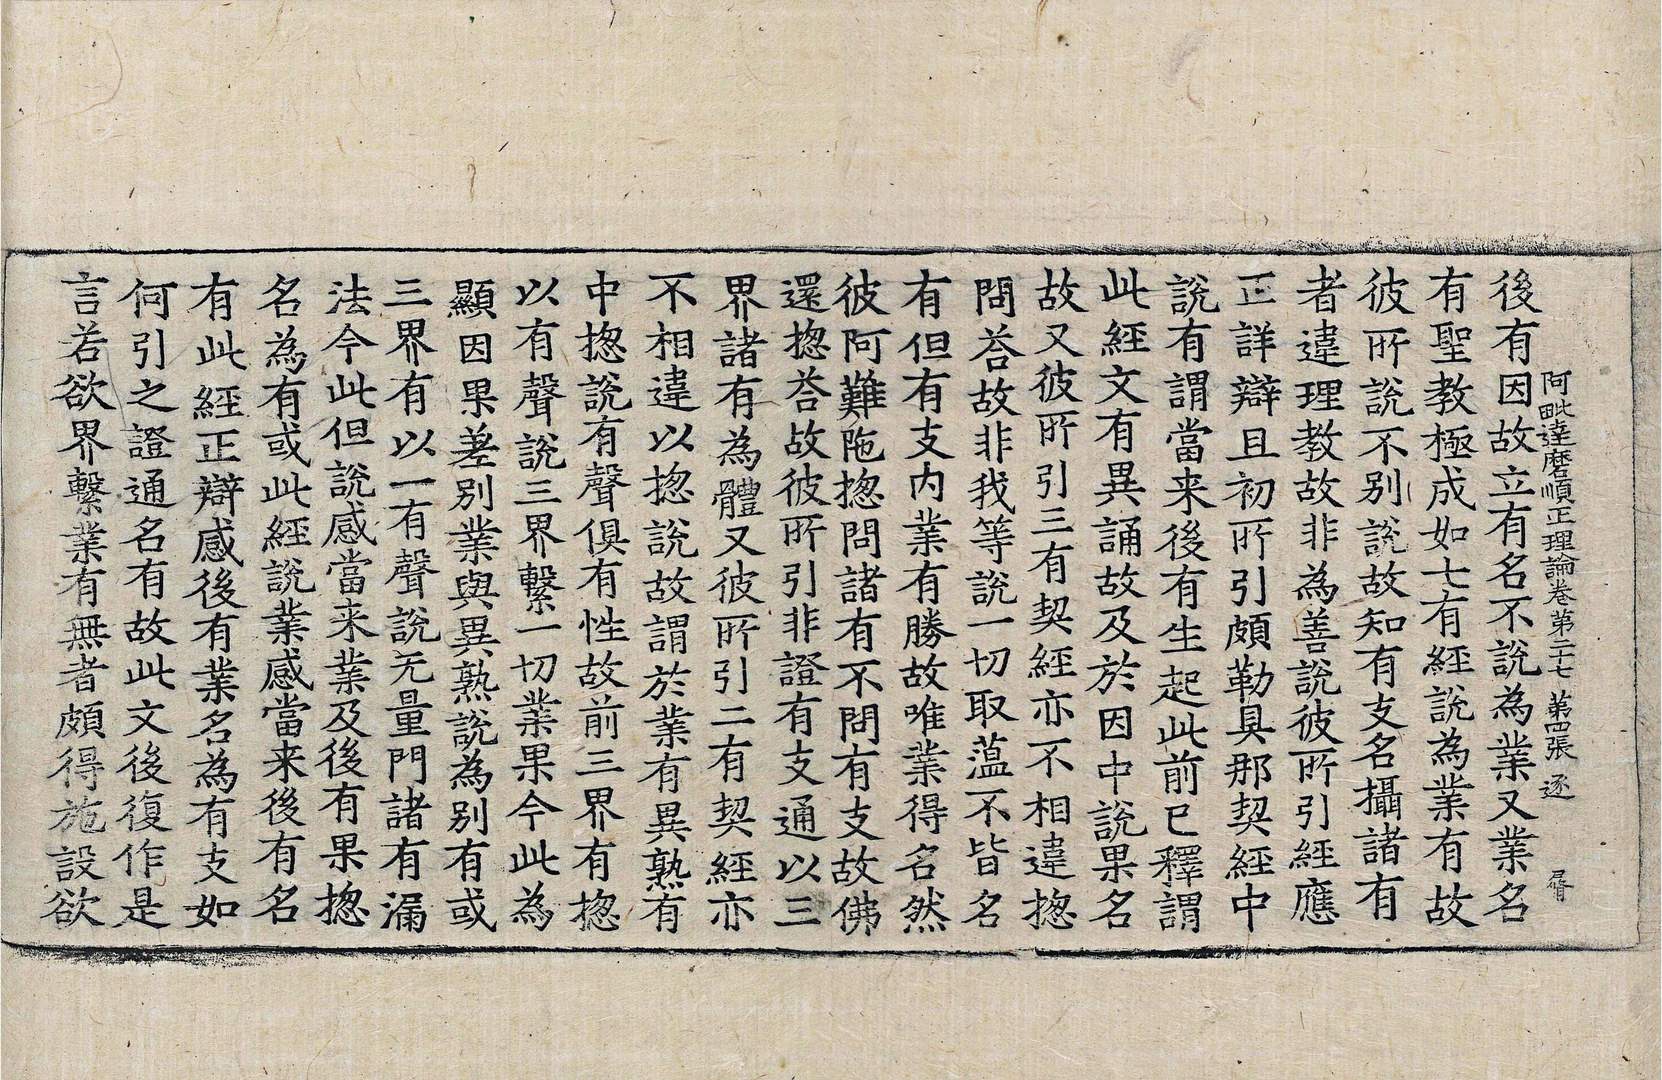 阿毗達磨順正理論卷第二十七　第四張　逐
後有因故立有名不說為業又業名
有聖教極成如七有經說為業有故
彼所說不別說故知有支名攝諸有
者違理教故非為善說彼所引經應
正詳辯且初所引頗勒具那契經中
說有謂當来後有生起此前已釋謂
此經文有異誦故及於因中說果名
故又彼所引三有契經亦不相違揔
問荅故非我等說一切取薀不皆名
有但有支内業有勝故唯業得名然
彼阿難陁揔問諸有不問有支故佛
還揔荅故彼所引非證有支通以三
界諸有為體又彼所引二有契經亦
不相違以揔說故謂於業有異熟有
中揔說有聲俱有性故前三界有揔
以有聲說三界繫一切業果今此為
顯因果差別業與異熟說為別有或
三界有以一有聲說无量門諸有漏
法今此但說感當来業及後有果揔
名為有或此經說業感當来後有名
有此經正辯感後有業名為有支如
何引之證通名有故此文後復作是
言若欲界繫業有無者頗得施設欲